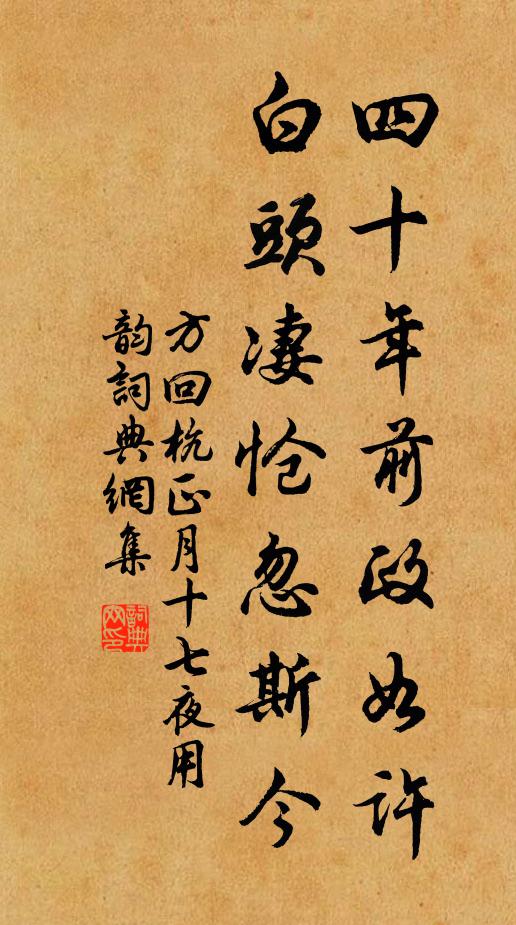 四十年前政如许
白頭凄怆忽斯今
方回杭正月十七夜用
韵詞典網集
詞典网印